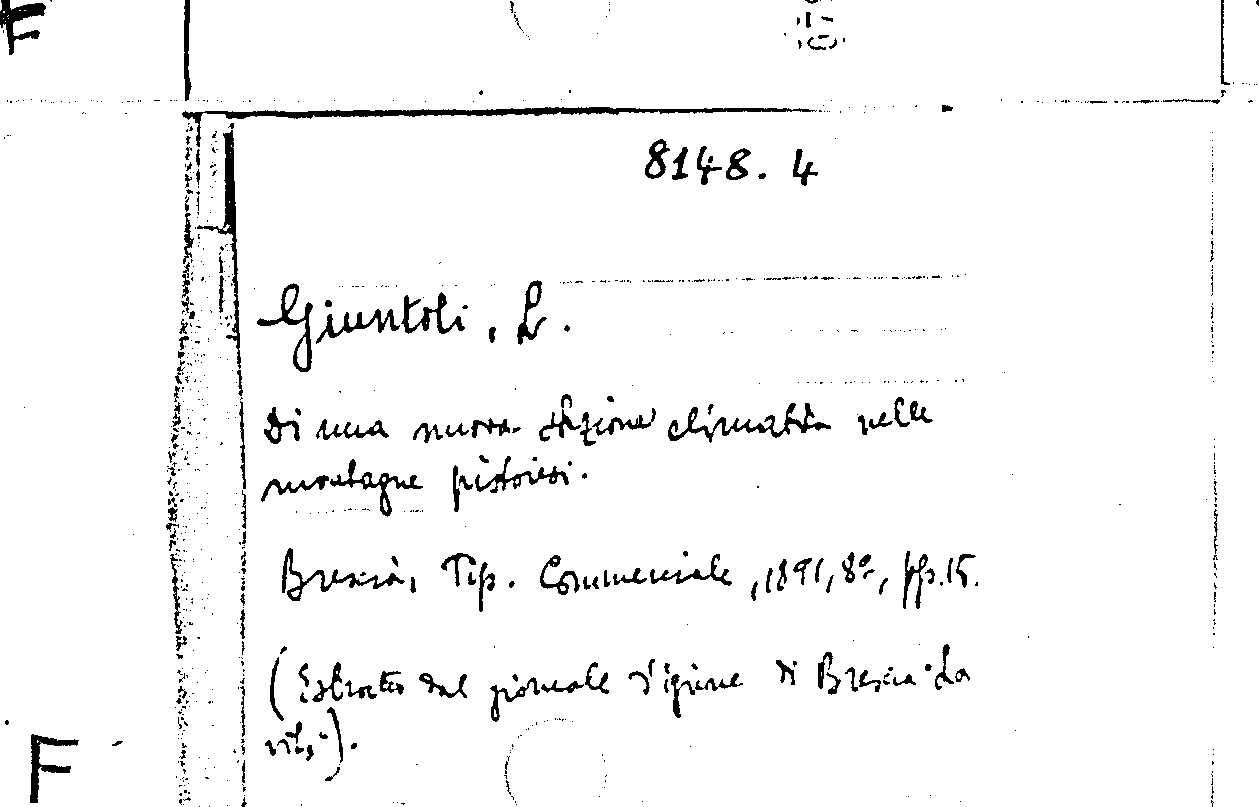 F
8148. 4
Giuntoli, L.
Di una nuova stazione climatica nelle
montagne pistoiesi.
Brescia, Tip. Commerciale, 1891, 8º, pp. 15.
(Estratto dal giornale d'igiene di Brescia "La
vita").
F